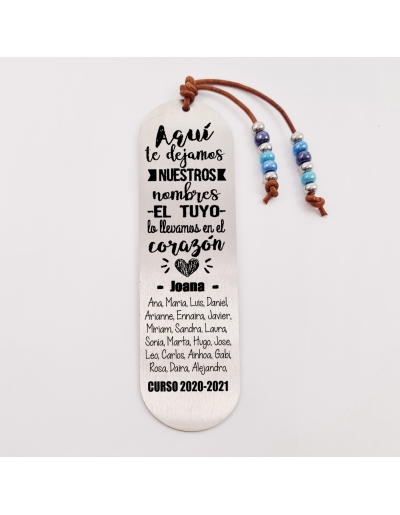 Aquí
te dejamos
NUESTROS
nombres
-EL TUYO-
lo llevamos en el
corazón
- Joana -
Ana, Maria, Luis, Daniel,
Arianne, Ennaira, Javier,
Miriam, Sandra, Laura,
Sonia, Marta, Hugo, Jose,
Leo, Carlos, Ainhoa, Gabi,
Rosa, Daira, Alejandro,
CURSO 2020-2021